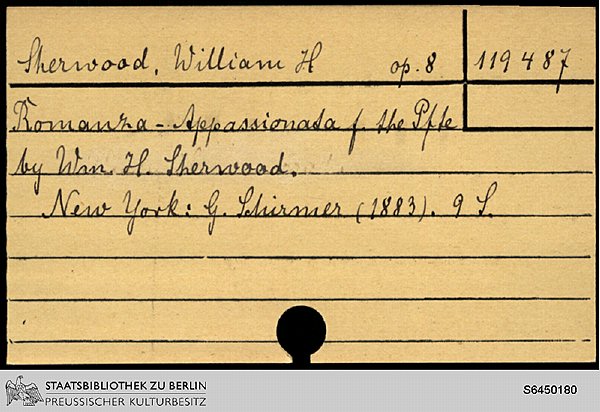 Sherwood, William H op. 8 119487
Romanza - Appassionata f. the Pfte
by Wm. H. Sherwood.
New York: G. Schirmer (1883). 9 S.
STAATSBIBLIOTHEK ZU BERLIN
PREUSSISCHER KULTURBESITZ
S6450180